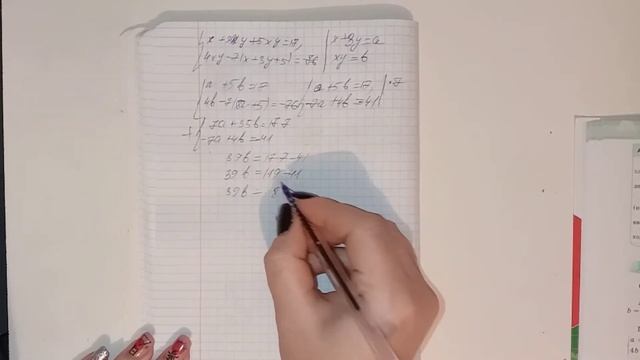 x + 3y + 5xy = 17,
4xy - 7(x + 3y + 5) = -76
x + 3y = a
xy = b
a + 5b = 17
4b - 7(a + 5) = -76
a + 5b = 17, | · 7
-7a + 4b = -41
7a + 35b = 17·7
-7a + 4b = -41
39b = 17·7 - 41
39b = 119 - 41
39b =